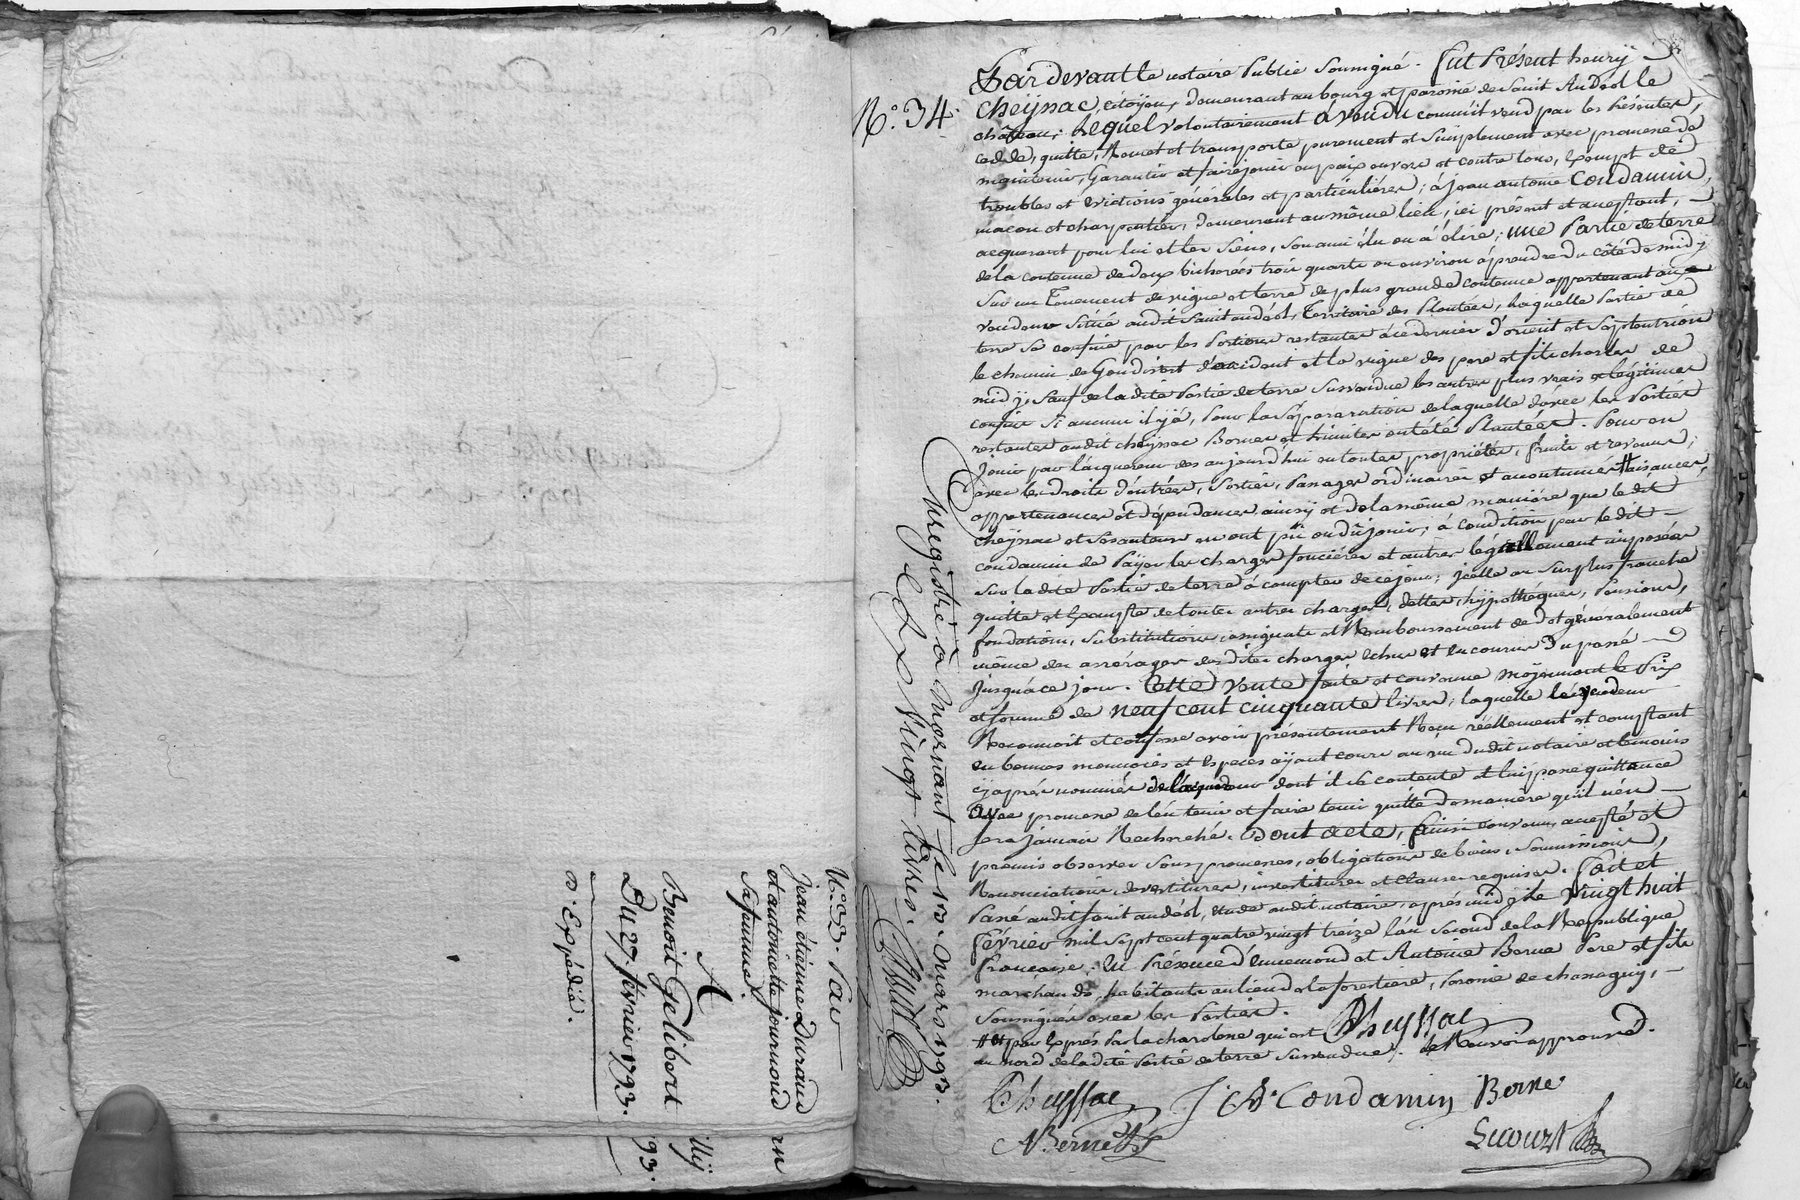 N.° 33. Par
jean étienne Durand
et antoinette journoud
sa femme.
A
Benoit Gelibert
Du 27. février 1793.
D. Expédié.
N.° 34.
Pardevant le notaire Public soussigné. fut Présent henrÿ
cheÿssac, citoÿen, demeurant au bourg et paroisse de Saint Andeol le
château; Lequel volontairement à vendu comm'il vend par les Présentes,
cedde, quitte, Remet et transporte purement et simplement avec promesse de
maintenir, Garantir et faire jouir en paix envers et contre tous, Exempt de
troubles et évictions générales et particulières; à jean antoine Condamin,
maçon et charpentier, demeurant au même lieu, ici présent et acceptant,
acquerant pour lui et les siens, son ami élu ou à élire; une Partie de terre
de la contenue de deux bicherées trois quarts ou environ à prendre du côté de midÿ
sur un Tenement de vigne et terre de plus grande contenue appartenant au
vendeur Situé audit Saint andéol, Territoire des Plantées, laquelle Partie de
terre se confine par les Portions restantes à ce dernier d'orient et Septentrion
le chemin de d'occident et la vigne des pere et fils charles de
midÿ, sauf de la dite Partie de terre susvendue les autres plus vrais et légitimes
confins si aucuns il y à, Pour la séparation de laquelle d'avec les Parties
restantes audit cheÿssac Bornes et limites ont été Plantées. Pour en
jouir par l'acquereur dès aujourd'hui en toutes propriétés, fruits et revenus,
avec les droits d'entrées, sorties, Passages ordinaires et accoutumés # aisances,
appartenances et dépendances ainsÿ et de la même manière que le dit
cheÿssac et ses auteurs en ont pû ou dû jouir, à condition par le dit
condamin de Païer les charges foncières et autres légallement imposées
sur la dite Partie de terre à compter de ce jour; icelle au surplus franche
quitte et Exempte de toutes autres charges, dettes, hÿpothéques, Pensions,
fondations, substitutions, assignats et Remboursement de dot généralement
même des arrérages des dites charges echus et encourus du passé
jusqu'à ce jour. Cette vente faite et convenue moÿennant le Prix
et somme de neuf cent cinquante livres, laquelle le vendeur
Reconnoit et confesse avoir présentement Reçu réellement et comptant
en bonnes monnoies et Especes aÿant cours au vu dudit notaire et témoins
cÿaprès nommés de l'acquereur dont il se contente et lui passe quittance
avec promesse de l'en tenir et faire tenir quitte de manière qu'il n'en
sera jamais Recherché. Dont acte, Ainsi convenu, accepté et
promis observer sous promesses, obligations de biens, soumissions,
Renonciations, devestitures, investitures et clauses requises. Fait et
Passé audit saint andéol, étude dudit notaire, après midÿ le vingt huit
février mil Sept cent quatre vingt treize l'an second de la Republique
française; En Présence d'ennemond et Antoine Berne Pere et fils
marchands, habitants au lieu de la forestiere, Paroisse de chassagny,
soussignés avec les Parties.
# et par Exprés Par la charolene qui est
au nord de la dite Partie de terre susvendue. le Renvoi approuvé.
Cheyssac
Cheyssac J. A. Condamin Berne
A Berne fils Lecourt
Enregistré à Mornant le 13. mars 1793.
Vingt Livres.